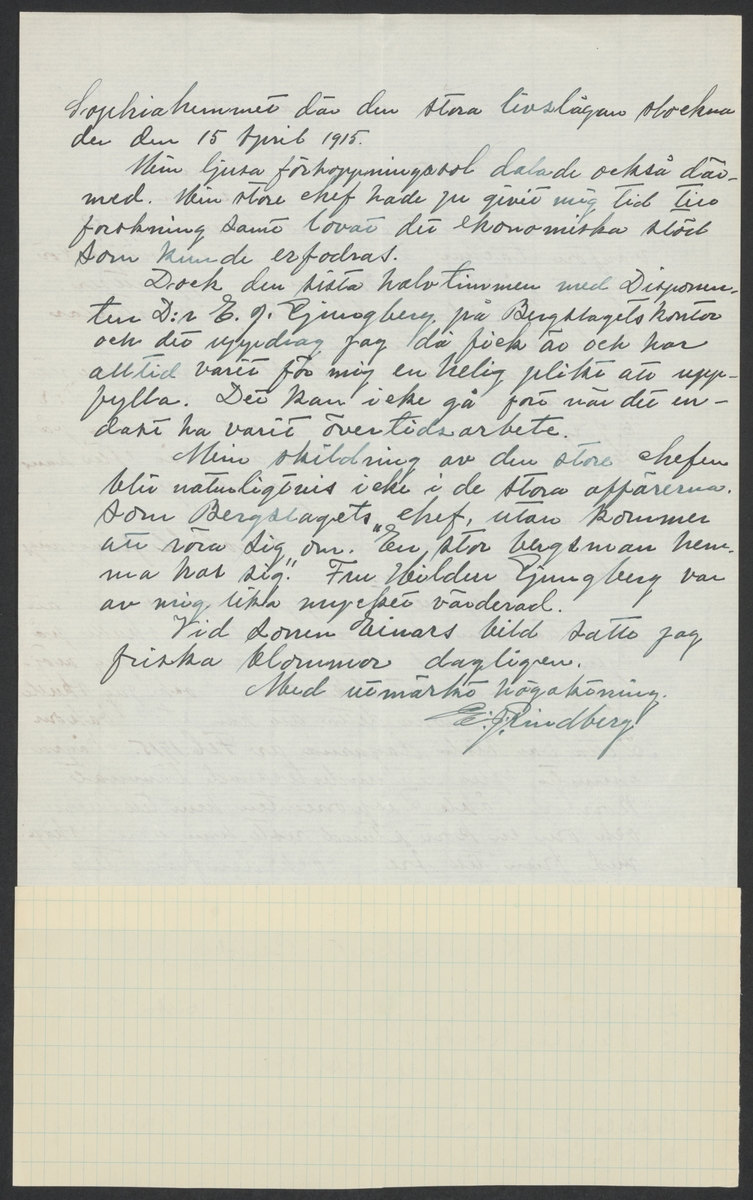 Sophiahemmet där den stora livslågan slockna
der den 15 April 1915.
Min ljusa förhoppningssol dalade också där-
med. Min store chef hade ju givit mig tid till
forskning samt lovat det ekonomiska stöd
som kunde erfodras.
Dock den sista halvtimmen med Disponen-
ten D:r E. J. Ljungberg på Bergslagets kontor
och det uppdrag jag då fick är och har
alltid varit för mig en helig plikt att upp-
fylla. Det kan icke gå fort när det en-
dast ha varit övertidsarbete.
Min skildring av den store chefen
blir naturligtvis icke i de stora affärerna.
Som Bergslagets chef, utan kommer
att röra sig om. "En stor bergsman hem-
ma hos sig". Fru Hilden Ljungberg var
av mig lika mycket värderad.
Vid sonen Einars bild satte jag
friska blommor dagligen.
Med utmärkt högaktning.
E. J. Lindberg